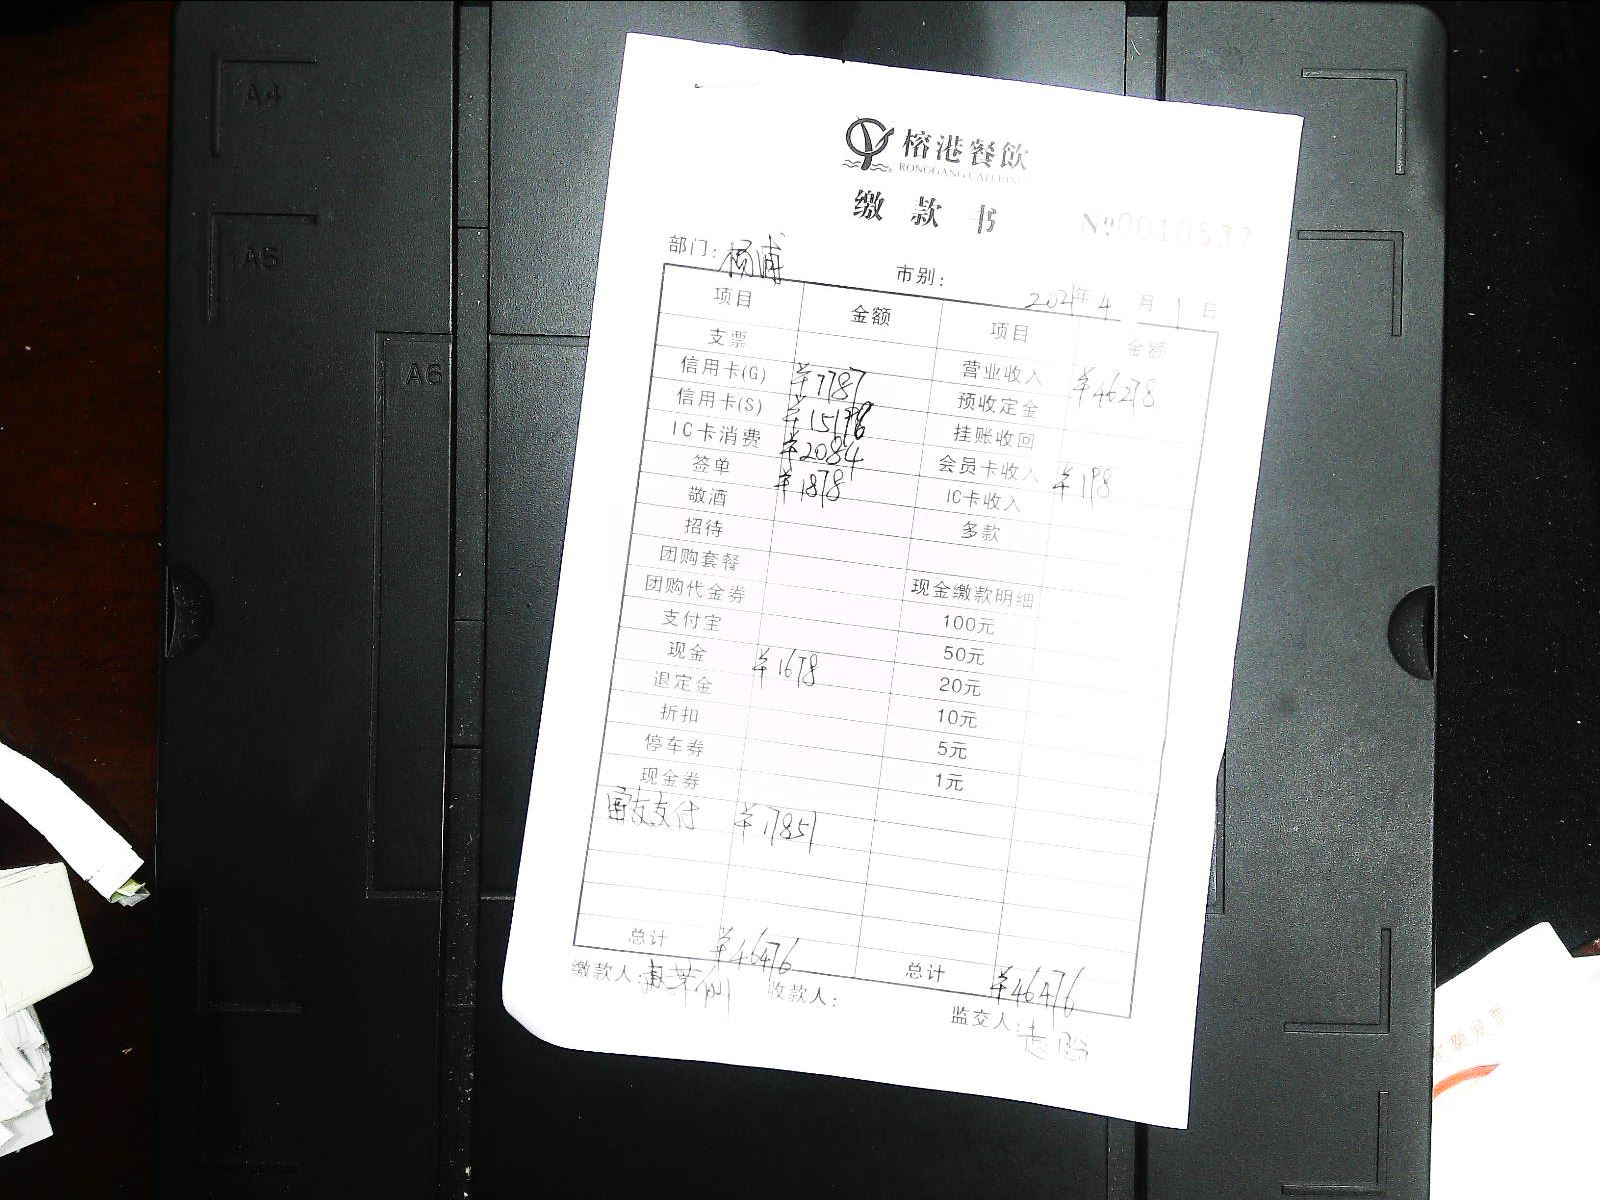 A4
A5
A6
榕港餐飲
RONGGANG CATERING
缴款书 №0010537
部门: 杨浦 市别: 2021年4月1日
项目 金额 项目 金额
支票 营业收入 ¥46278
信用卡(G) ¥7787 预收定金
信用卡(S) ¥15198 挂账收回
IC卡消费 ¥2084 会员卡收入 ¥198
签单 ¥1878 IC卡收入
敬酒 多款
招待
团购套餐 现金缴款明细
团购代金券 100元
支付宝 50元
现金 ¥1678 20元
退定金 10元
折扣 5元
停车券 1元
现金券
富友支付 ¥17851
总计 ¥46476 总计 ¥46476
缴款人: 收款人: 监交人:
额发票